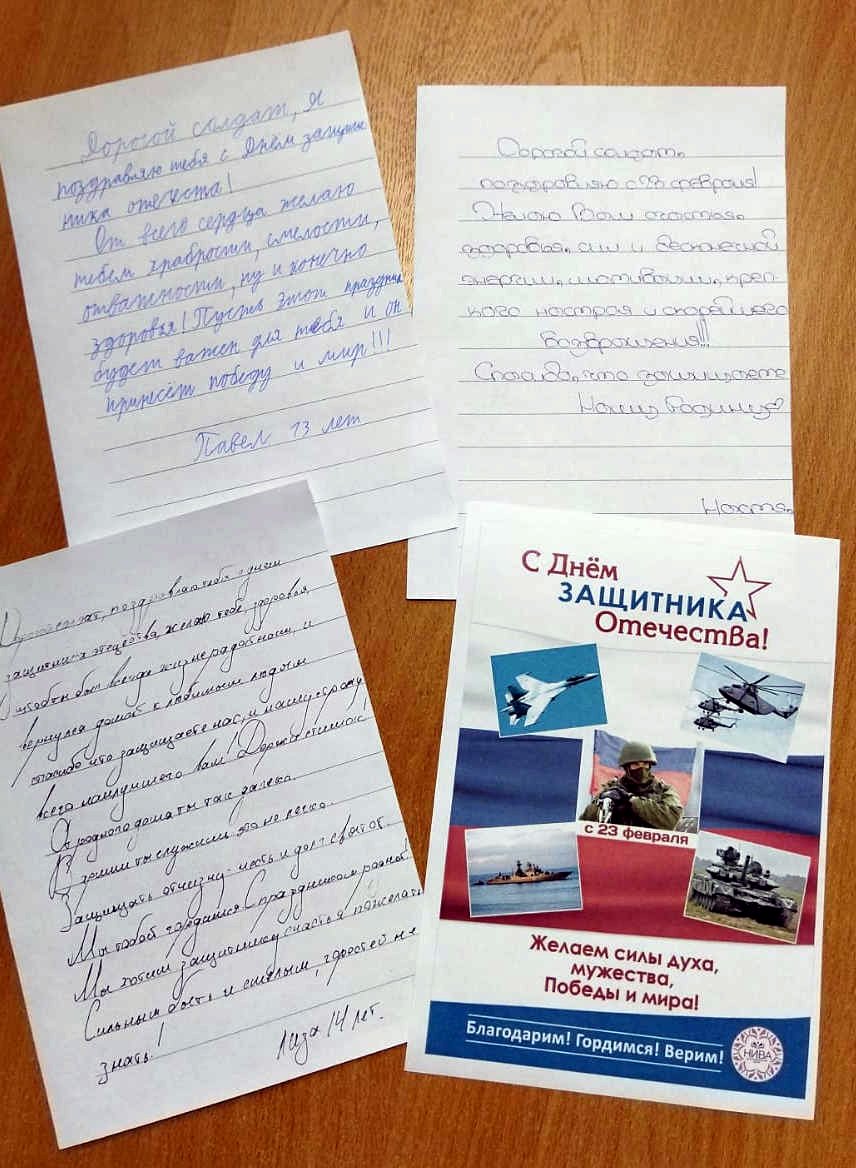 Дорогой солдат, я
поздравляю тебя с Днём защит
ника отечества!
От всего сердца желаю
тебем храбрости, смелости,
отважности, ну и конечно
здоровья! Пусть этот праздник
будет важен для тебя и он
принесёт победу и мир!!!
Павел 13 лет
Дорогой солдат,
поздравляю с 23 февраля!
Желаю Вам счастья,
здоровья, сил и бесконечной
энергии, мотивации, креп-
кого настроя и скорейшего
возвращения!!!
Спасибо, что защищаете
Нашу Родину♡
Настя,
Дорогой солдат, поздравляю тебя с днем
защитника отечества, желаю тебе, здоровья,
чтобы ты был всегда жизнерадостным, и
вернулся домой к любимым людям
спасибо что защищаете нас, и нашу страну
всего наилучшего вам! Держастишок!
От родного дома ты так далеко.
В армии ты служишь это не легко.
Защищать отчизну-честь и долг святой.
Мы тобой гордимся С праздником родной!
Мы хотим защитнику счастья пожелать
Сильным быть и смелым, горостей не
знать!
Лиза 14 лет.
С Днём
ЗАЩИТНИКА
Отечества!
с 23 февраля
Желаем силы духа,
мужества,
Победы и мира!
Благодарим! Гордимся! Верим!
НИВА